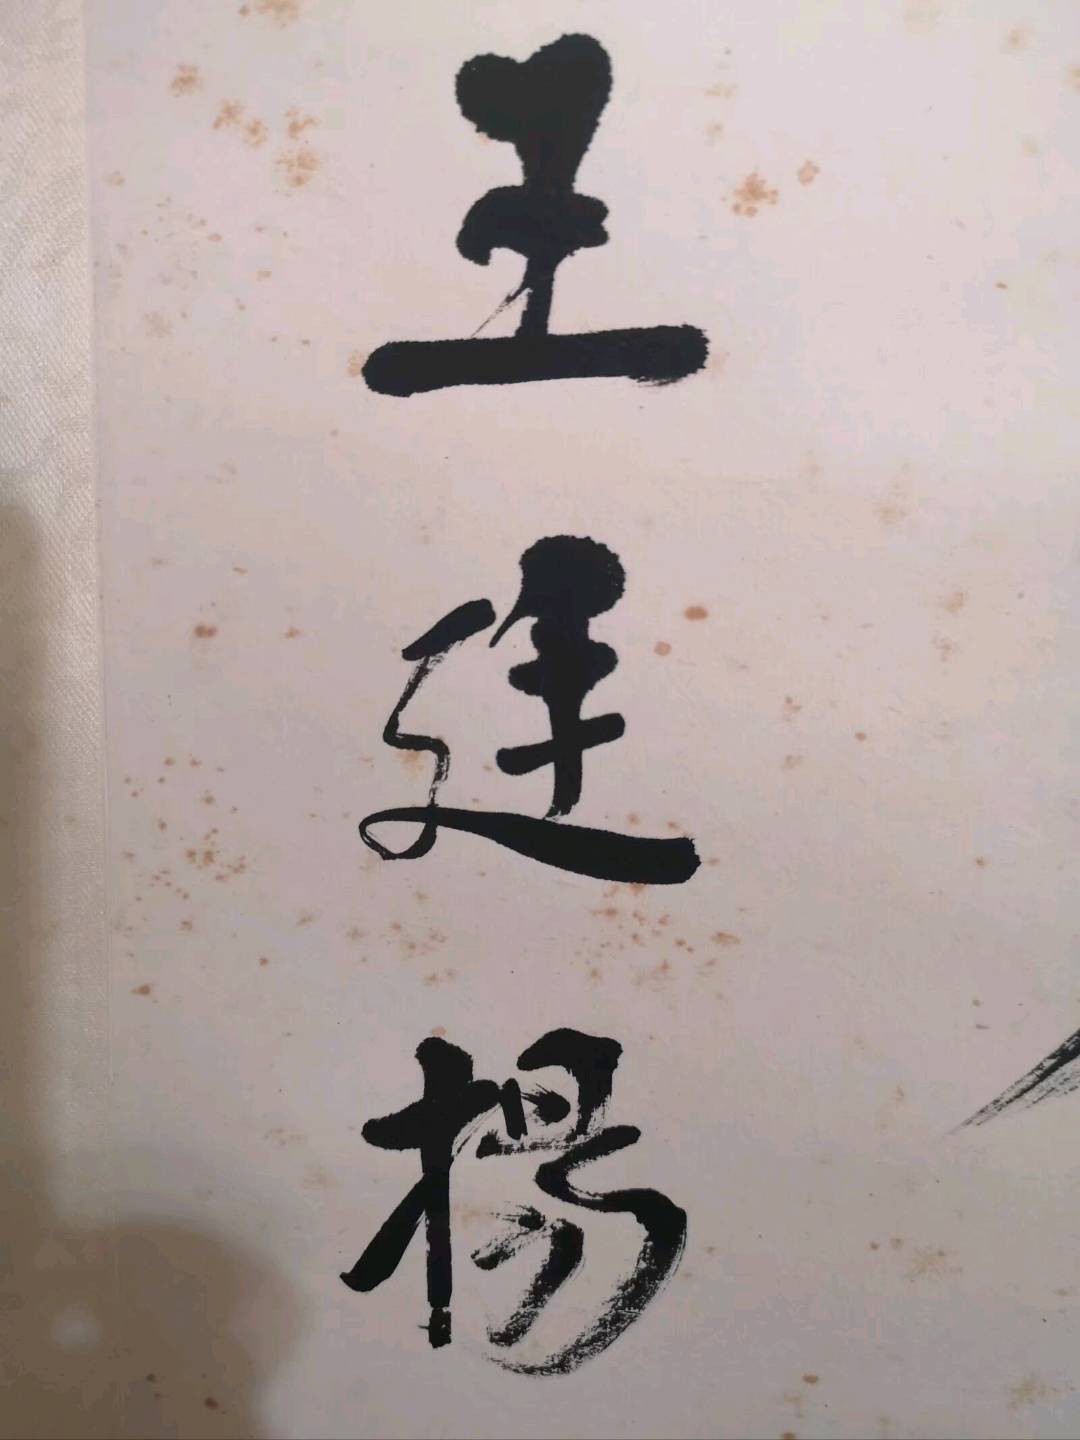 王廷楊